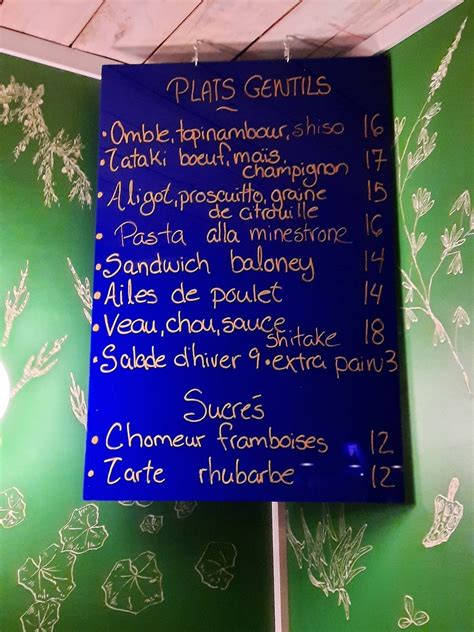 PLATS GENTILS
• Omble, topinambour, shiso 16
• Tataki boeuf, maïs, champignon 17
• Aligot, proscuitto, graine de citrouille 15
• Pasta alla minestrone 16
• Sandwich baloney 14
• Ailes de poulet 14
• Veau, chou, sauce shitake 18
• Salade d'hiver 9 • extra pain 3
Sucrés
• Chomeur framboises 12
• Tarte rhubarbe 12